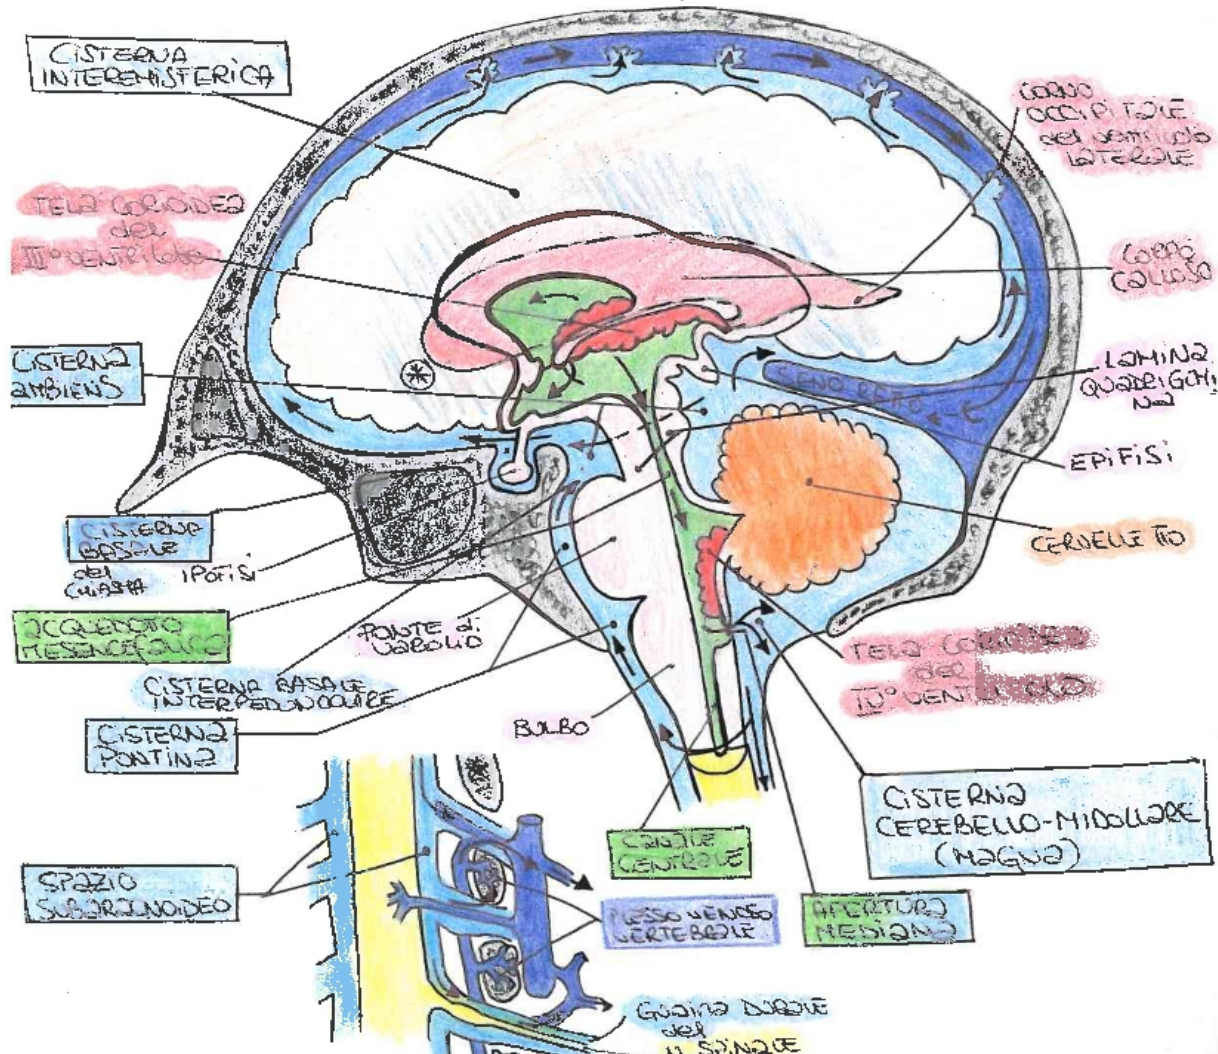 CISTERNA
INTEREMISFERICA
CORNO
OCCIPITALE
del ventricolo
LATERALE
TELA CORIOIDEA
del
III° VENTRICOLO
CORPO
CALLOSO
CISTERNA
AMBIENS
LAMINA
QUADRIGEMI
NA
SENO RETTO
EPIFISI
CISTERNA
BASALE
del
CHIASMA
IPOFISI
CERVELLETTO
ACQUEDOTTO
MESENCEFALICO
PONTE di
VAROLIO
TELA CORIOIDEA
del
IV° VENTRICOLO
CISTERNA BASALE
INTERPEDUNCOLARE
CISTERNA
PONTINA
BULBO
CISTERNA
CEREBELLO-MIDOLLARE
(MAGNA)
CANALE
CENTRALE
SPAZIO
SUBARACNOIDEO
PLESSO VENOSO
VERTEBRALE
APERTURA
MEDIANA
GUAINA DURALE
del
N. SPINALE